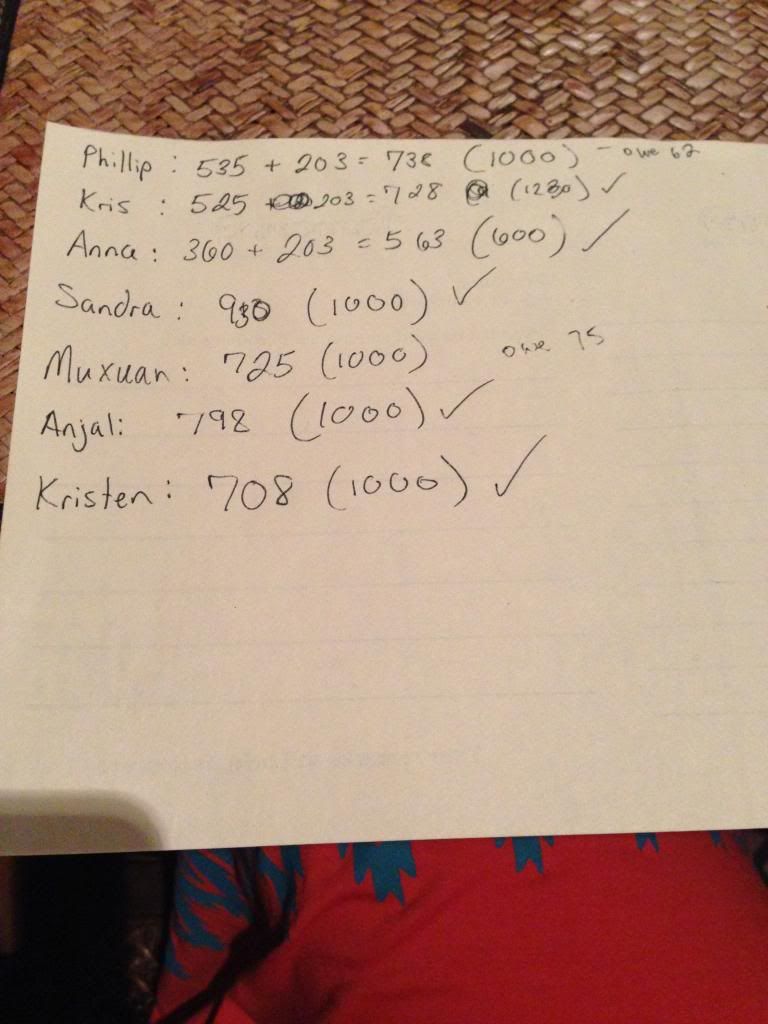 Phillip: 535 + 203 = 738 (1000) - owe 62
Kris : 525 + 203 = 728 (1230) ✓
Anna : 360 + 203 = 563 (600) ✓
Sandra : 930 (1000) ✓
Muxuan : 725 (1000) owe 75
Anjal: 798 (1000) ✓
Kristen : 708 (1000) ✓